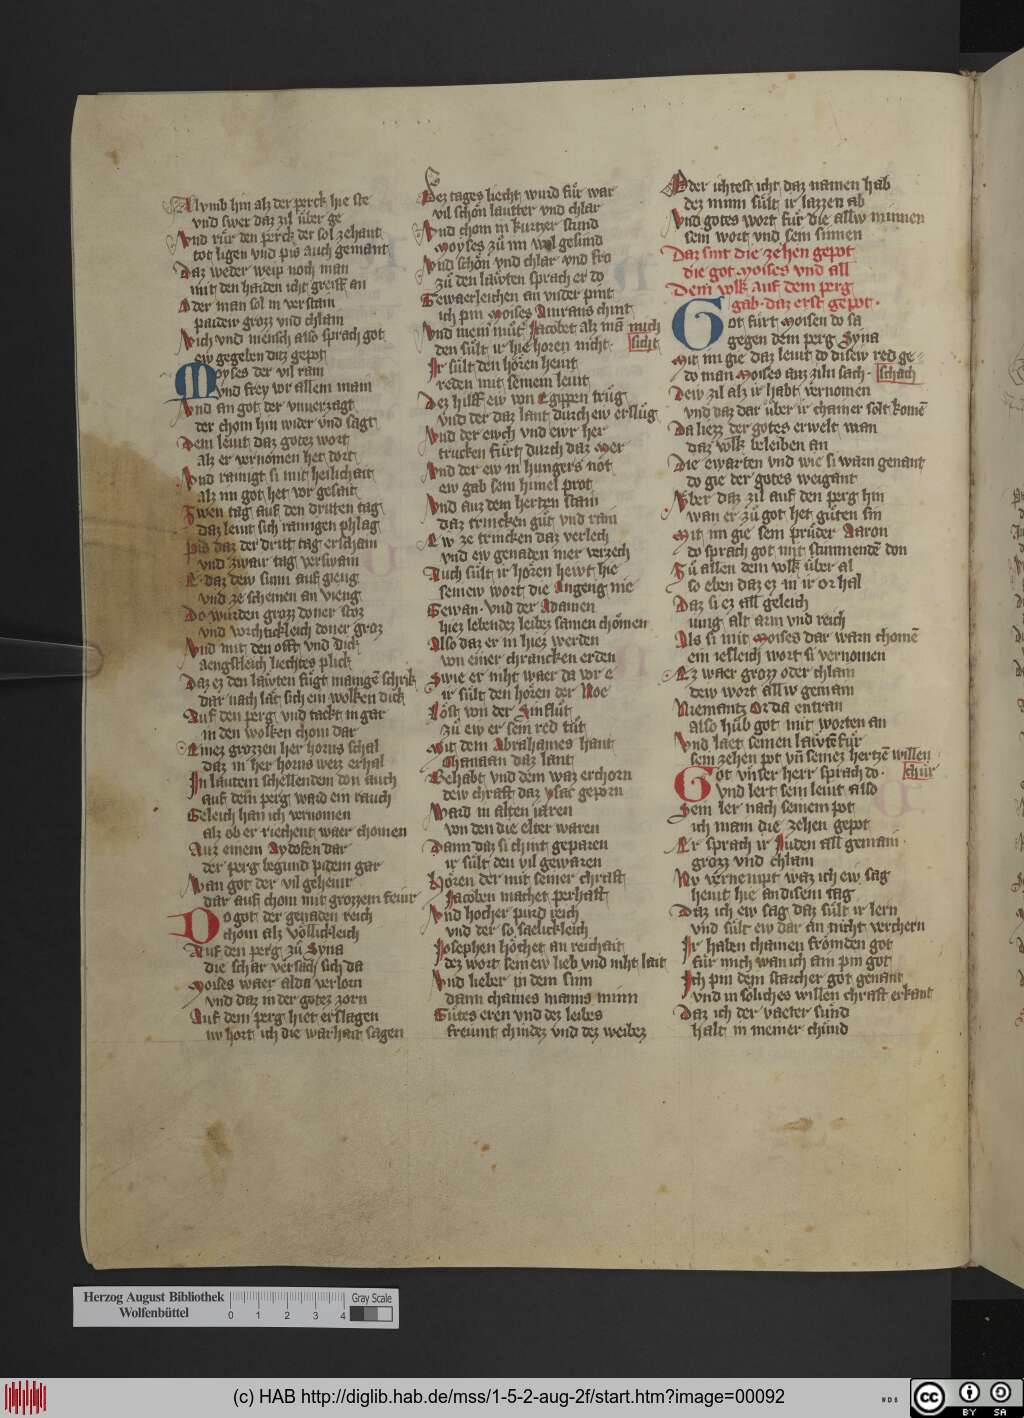 Al vmb hin alz der perck hie ste
vnd swer daz zil über ge
Vnd rür den perck der sol zehant
tot ligen vnd pis auch gemant
Daz weder weip noch man
mit den haiden icht greiff an
Oder man sol in verstain
paideiv grozz vnd chlain
Vich vnd mensch also sprach got
ew gegeben ditz gepot
Moyses der vil rain
vnd frey vor allem main
Vnd an got der vnuerzagt
der chom hin wider vnd sagt
Dem leuit daz gotez wort
alz er vernomen het dort
Vnd rainigt si mit heilichait
alz im got het vor gesait
Zwen tag auf den dritten tag
daz leuit sich rainigen phlag
Pis daz der dritt tag erschain
vnd zwair tag verswain
E daz dew sunn auf gieng
vnd ze scheinen an vieng
Do wurden grozz doner stoz
vnd vorchtickleich doner groz
Vnd mit den offt vnd dick
aengstleich liechtes plick
Daz ez den läwten fügt manigē schrik
dar nach lät sich ein wolken dick
Auf den perg vnd tackt in gar
in den wolken chom dar
Einez grozzen her horns schal
daz in her horns weiz erhal
In lautem schellendem don auch
auf dem perg ward ein rauch
Geleich han ich vernomen
alz ob er riechent waer chomen
Auz einem Aydofen dar
der perg begund pidem gar
Wan got der vil geheuir
dar auf chom mit grozzem feuir
Do got der genaden reich
chom alz völlickleich
Auf den perg zü Syna
die schar versach sich da
Moises waer alda verlorn
vnd daz in der gotez zorn
Auf dem perg hiet erslagen
nv hort ich die warhait sagen
Dez tages liecht wurd für war
vil schön lautter vnd chlar
Vnd chom in kurtzer stund
Moyses zü im wol gesund
Vnd schön vnd chlar vnd fro
zü den läwten sprach er do
Gewaerleichen an vnder pint
ich pin Moises Amrams chint
Vnd mein müt Jacobet alz mā mich
den sült ir hie horen nicht
sicht
Ir sült den hören heuit
reden mit seinem leuit
Dez hilff ew von Egippen trüg
vnd der daz lant durch ew erslüg
Vnd der ewch vnd ewr her
trucken fürt durch daz Mer
Vnd der ew in hungers not
ew gab sein himel prot
Vnd auz dem herten stain
daz trincken güt vnd rain
Ew ze trincken daz verlech
vnd ew genaden mer verzech
Auch sült ir horen hewt hie
seinew wort die Angeng nie
Gewan vnd der Adamen
hiez lebendez leibez samen chömen
Also daz er in hiez werden
von einer chrancken erden
Swie er niht waer da vor e
ir sült den hören der Noe
Löst von der Sinflüt
zü ew er sein red tüt
Mit dem Abrahames hant
Chanaan daz lant
Behabt vnd dem waz erchorn
dew chrafft daz ysac geporn
Ward in alten iaren
von den die elter waren
Dann daz si chint geparen
ir sült den vil gewaren
Hören der mit seiner chrafft
Jacoben machet perhafft
Vnd hocher pürd reich
vnd der so saelickleich
Josephen höchet an reichait
dez wort sein ew lieb vnd niht lait
Vnd lieber in dem sinn
dann chaines manns minn
Gütes eren vnd dez leibes
freunt chindez vnd dez weibez
Oder ichtest icht daz namen hab
dez minn sült ir lazzen ab
Vnd gotes wort für die allw minnen
sein wort vnd sein sinnen
Daz sint die zehen gepot
die got Moises vnd all
Dem volk auf dem perg
gab daz erst gepot
Got fürt Moisen do sa
gegen dem perg Syna
Mit im gie daz leuit do disew red ge=
do man Moises anz ziln sach
schach
Dew zil alz ir habt vernomen
vnd daz dar über ir chainer solt komē
Da liezz der gotes erwelt man
daz volk beleiben an
Die ewarten vnd wie si warn genant
do gie der gotes weigant
Vber daz zil auf den perg hin
wan er zü got het güten sin
Mit im gie sein prüder Aaron
do sprach got mit stimmendē don
Zü allen dem volk über al
so eben daz ez in ir or hal
Daz si ez all geleich
iung alt arm vnd reich
Als si mit Moises dar warn chomē
ein iesleich wort si vernomen
Ez waer grozz oder chlain
dew wort allw gemain
Niemantz Or da entran
also hüb got mit worten an
Vnd laet seinen läwtē für
sein zehen pot vn̄ seinez hertzē willen
chür
Got vnser herr sprach do
vnd lert sein leuit also
Sein ler nach seinem pot
ich main die zehen gepot
Er sprach ir Juden all gemain
grozz vnd chlain
Nv vernempt waz ich ew sag
heuit hie an disem tag
Daz ich ew sag daz sült ir lern
vnd sült ew dar an nicht verchern
Ir haben chainen frömden got
für mich wan ich ain pin got
Ich pin dein starcher got genant
vnd in soliches willen chrafft erkant
Daz ich der vaeter sünd
halt in meiner chünd
Herzog August Bibliothek
Wolfenbüttel
0 1 2 3 4
Gray Scale
(c) HAB http://diglib.hab.de/mss/1-5-2-aug-2f/start.htm?image=00092
WDB
cc BY SA